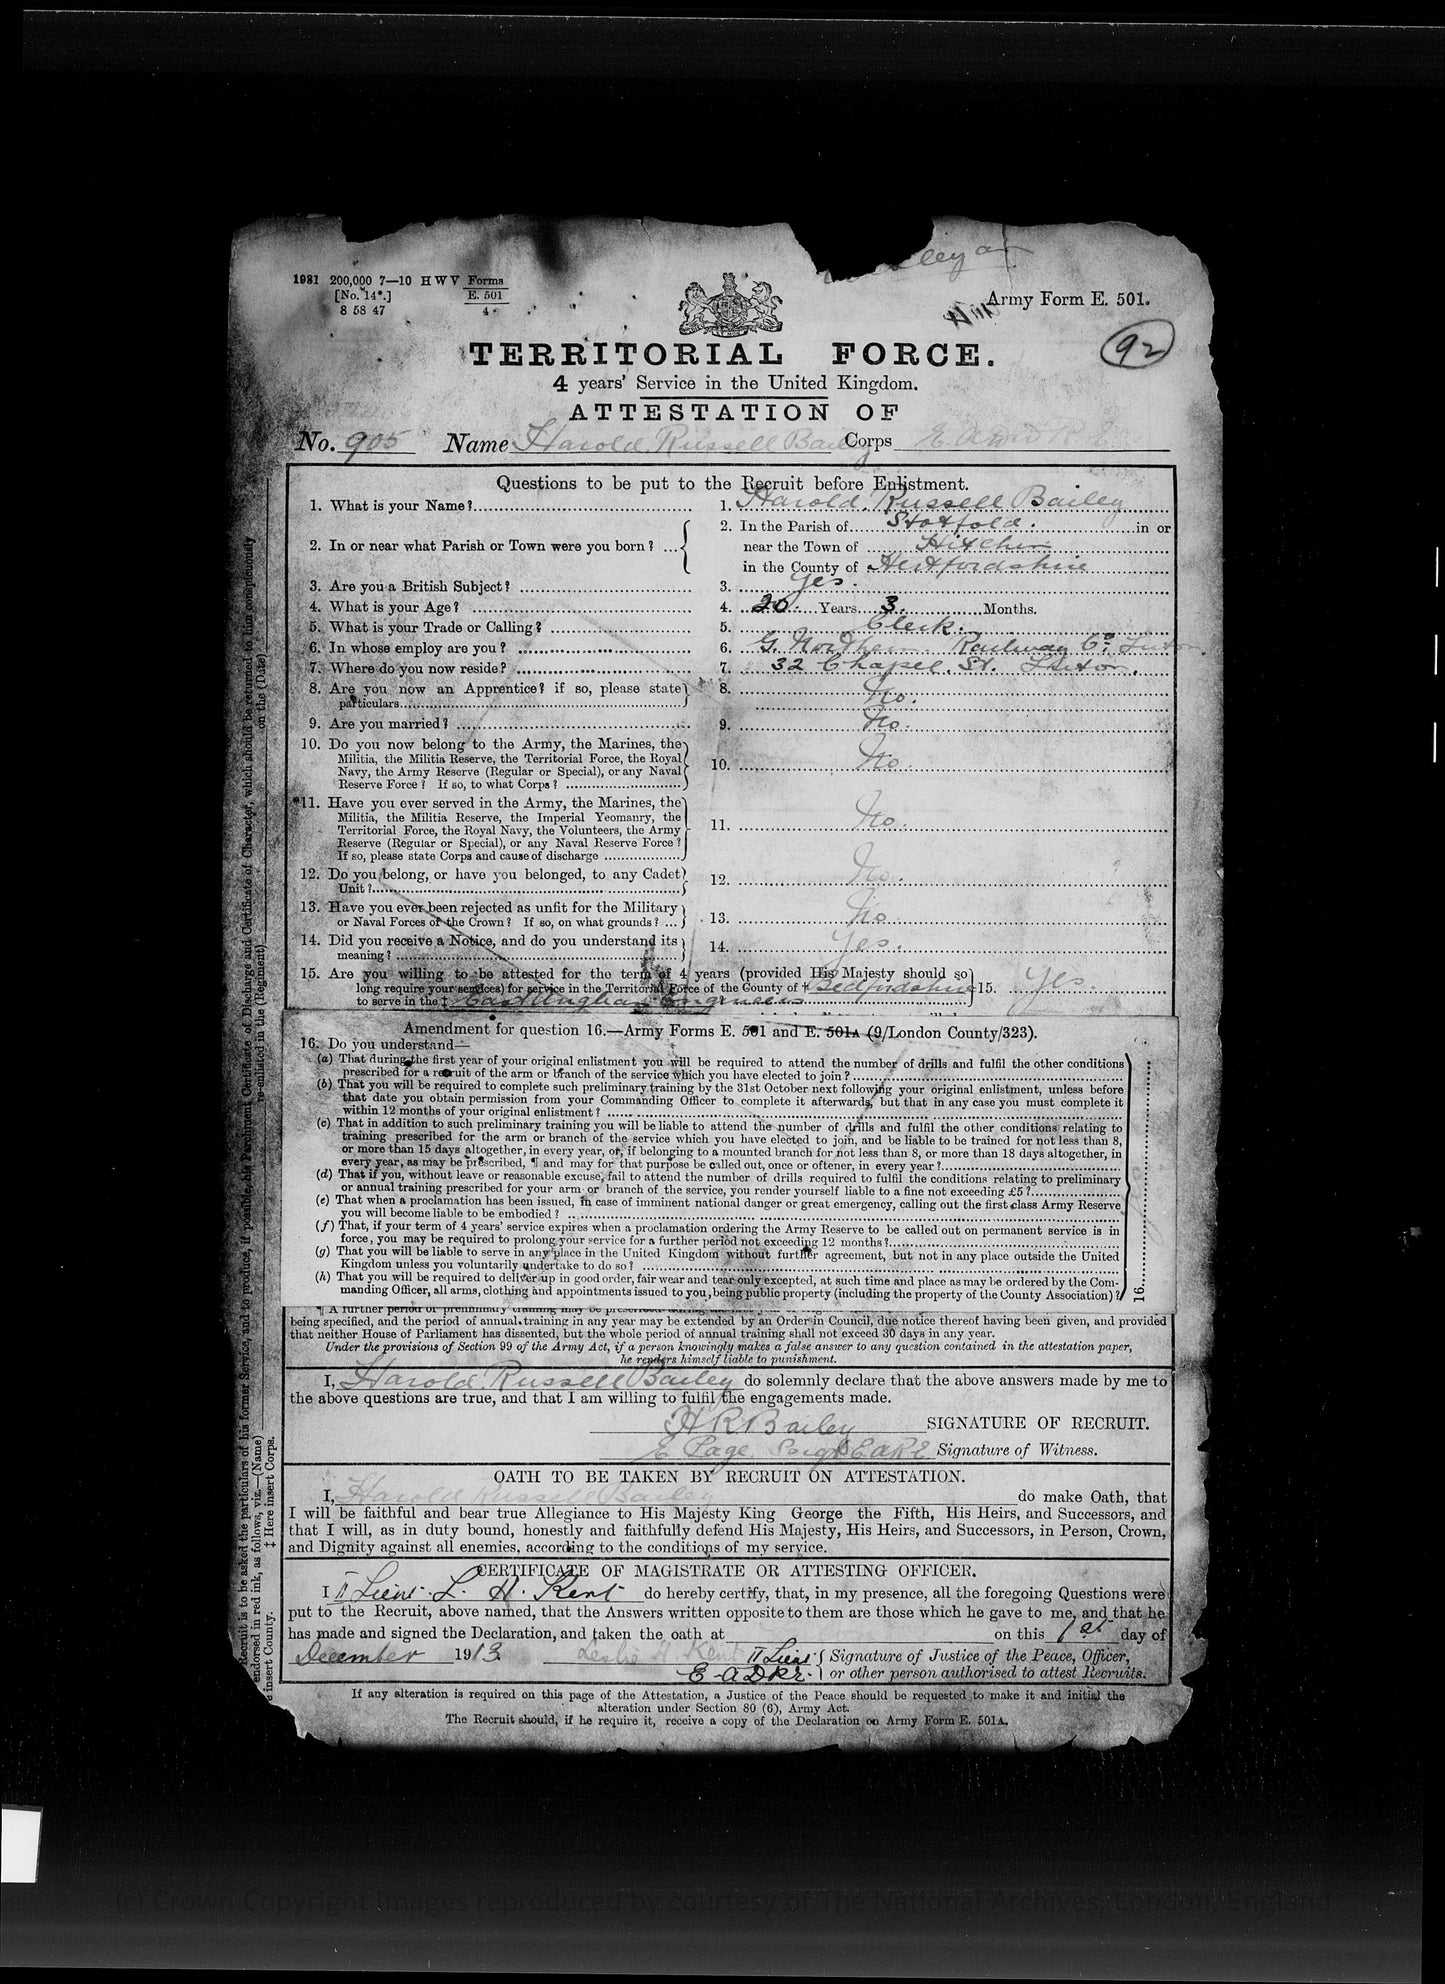 1981 200,000 7—10 H W V Forms
[No. 14*.] E. 501
8 58 47 4
Army Form E. 501.
92
TERRITORIAL FORCE.
4 years' Service in the United Kingdom.
ATTESTATION OF
No. 905 Name Harold Russell Bailey Corps
Questions to be put to the Recruit before Enlistment.
1. What is your Name? 1. Harold Russell Bailey
2. In or near what Parish or Town were you born? ... 2. In the Parish of Stotfold. in or
near the Town of Hitchin
in the County of Hertfordshire
3. Are you a British Subject? 3. Yes.
4. What is your Age? 4. 20 Years 3 Months.
5. What is your Trade or Calling? 5. Clerk.
6. In whose employ are you? 6. G. Northern Railway Co. Luton
7. Where do you now reside? 7. 32 Chapel St. Luton.
8. Are you now an Apprentice? if so, please state 8. No.
particulars
9. Are you married? 9. No.
10. Do you now belong to the Army, the Marines, the
Militia, the Militia Reserve, the Territorial Force, the Royal
Navy, the Army Reserve (Regular or Special), or any Naval 10. No
Reserve Force? If so, to what Corps?
*11. Have you ever served in the Army, the Marines, the
Militia, the Militia Reserve, the Imperial Yeomanry, the
Territorial Force, the Royal Navy, the Volunteers, the Army 11. No.
Reserve (Regular or Special), or any Naval Reserve Force?
If so, please state Corps and cause of discharge
12. Do you belong, or have you belonged, to any Cadet 12. No.
Unit?
13. Have you ever been rejected as unfit for the Military 13. No
or Naval Forces of the Crown? If so, on what grounds? ...
14. Did you receive a Notice, and do you understand its 14. Yes.
meaning?
15. Are you willing to be attested for the term of 4 years (provided His Majesty should so
long require your services) for service in the Territorial Force of the County of † Bedfordshire 15. Yes.
to serve in the ‡ East Anglian Engineers
Amendment for question 16.—Army Forms E. 501 and E. 501A (9/London County/323).
16. Do you understand—
(a) That during the first year of your original enlistment you will be required to attend the number of drills and fulfil the other conditions
prescribed for a recruit of the arm or branch of the service which you have elected to join?
(b) That you will be required to complete such preliminary training by the 31st October next following your original enlistment, unless before
that date you obtain permission from your Commanding Officer to complete it afterwards, but that in any case you must complete it
within 12 months of your original enlistment?
(c) That in addition to such preliminary training you will be liable to attend the number of drills and fulfil the other conditions relating to
training prescribed for the arm or branch of the service which you have elected to join, and be liable to be trained for not less than 8,
or more than 15 days altogether, in every year, or, if belonging to a mounted branch for not less than 8, or more than 18 days altogether, in
every year, as may be prescribed, ¶ and may for that purpose be called out, once or oftener, in every year?
(d) That if you, without leave or reasonable excuse, fail to attend the number of drills required to fulfil the conditions relating to preliminary
or annual training prescribed for your arm or branch of the service, you render yourself liable to a fine not exceeding £5?
(e) That when a proclamation has been issued, in case of imminent national danger or great emergency, calling out the first class Army Reserve
you will become liable to be embodied?
(f) That, if your term of 4 years' service expires when a proclamation ordering the Army Reserve to be called out on permanent service is in
force, you may be required to prolong your service for a further period not exceeding 12 months?
(g) That you will be liable to serve in any place in the United Kingdom without further agreement, but not in any place outside the United
Kingdom unless you voluntarily undertake to do so?
(h) That you will be required to deliver up in good order, fair wear and tear only excepted, at such time and place as may be ordered by the Com-
manding Officer, all arms, clothing and appointments issued to you, being public property (including the property of the County Association)? 16.
¶ A further period of preliminary training may be prescribed
being specified, and the period of annual training in any year may be extended by an Order in Council, due notice thereof having been given, and provided
that neither House of Parliament has dissented, but the whole period of annual training shall not exceed 30 days in any year.
Under the provisions of Section 99 of the Army Act, if a person knowingly makes a false answer to any question contained in the attestation paper,
he renders himself liable to punishment.
I, Harold Russell Bailey do solemnly declare that the above answers made by me to
the above questions are true, and that I am willing to fulfil the engagements made.
H R Bailey SIGNATURE OF RECRUIT.
E Page Signature of Witness.
OATH TO BE TAKEN BY RECRUIT ON ATTESTATION.
I, Harold Russell Bailey do make Oath, that
I will be faithful and bear true Allegiance to His Majesty King George the Fifth, His Heirs, and Successors, and
that I will, as in duty bound, honestly and faithfully defend His Majesty, His Heirs, and Successors, in Person, Crown,
and Dignity against all enemies, according to the conditions of my service.
CERTIFICATE OF MAGISTRATE OR ATTESTING OFFICER.
I II Lieut. L. H. Kent do hereby certify, that, in my presence, all the foregoing Questions were
put to the Recruit, above named, that the Answers written opposite to them are those which he gave to me, and that he
has made and signed the Declaration, and taken the oath at on this 1st day of
December 1913 Leslie H Kent II Lieut. Signature of Justice of the Peace, Officer,
E.A.D.R.E. or other person authorised to attest Recruits.
If any alteration is required on this page of the Attestation, a Justice of the Peace should be requested to make it and initial the
alteration under Section 80 (6), Army Act.
The Recruit should, if he require it, receive a copy of the Declaration on Army Form E. 501A.
Recruit is to be asked the particulars of his former Service, and to produce, if possible, his Parchment Certificate of Discharge and Certificate of Character, which should be returned to him conspicuously
endorsed in red ink, as follows, viz.—(Name) re-enlisted in the (Regiment) on the (Date)
insert County. ‡ Here insert Corps.
(c) Crown Copyright Images reproduced by courtesy of The National Archives, London, England